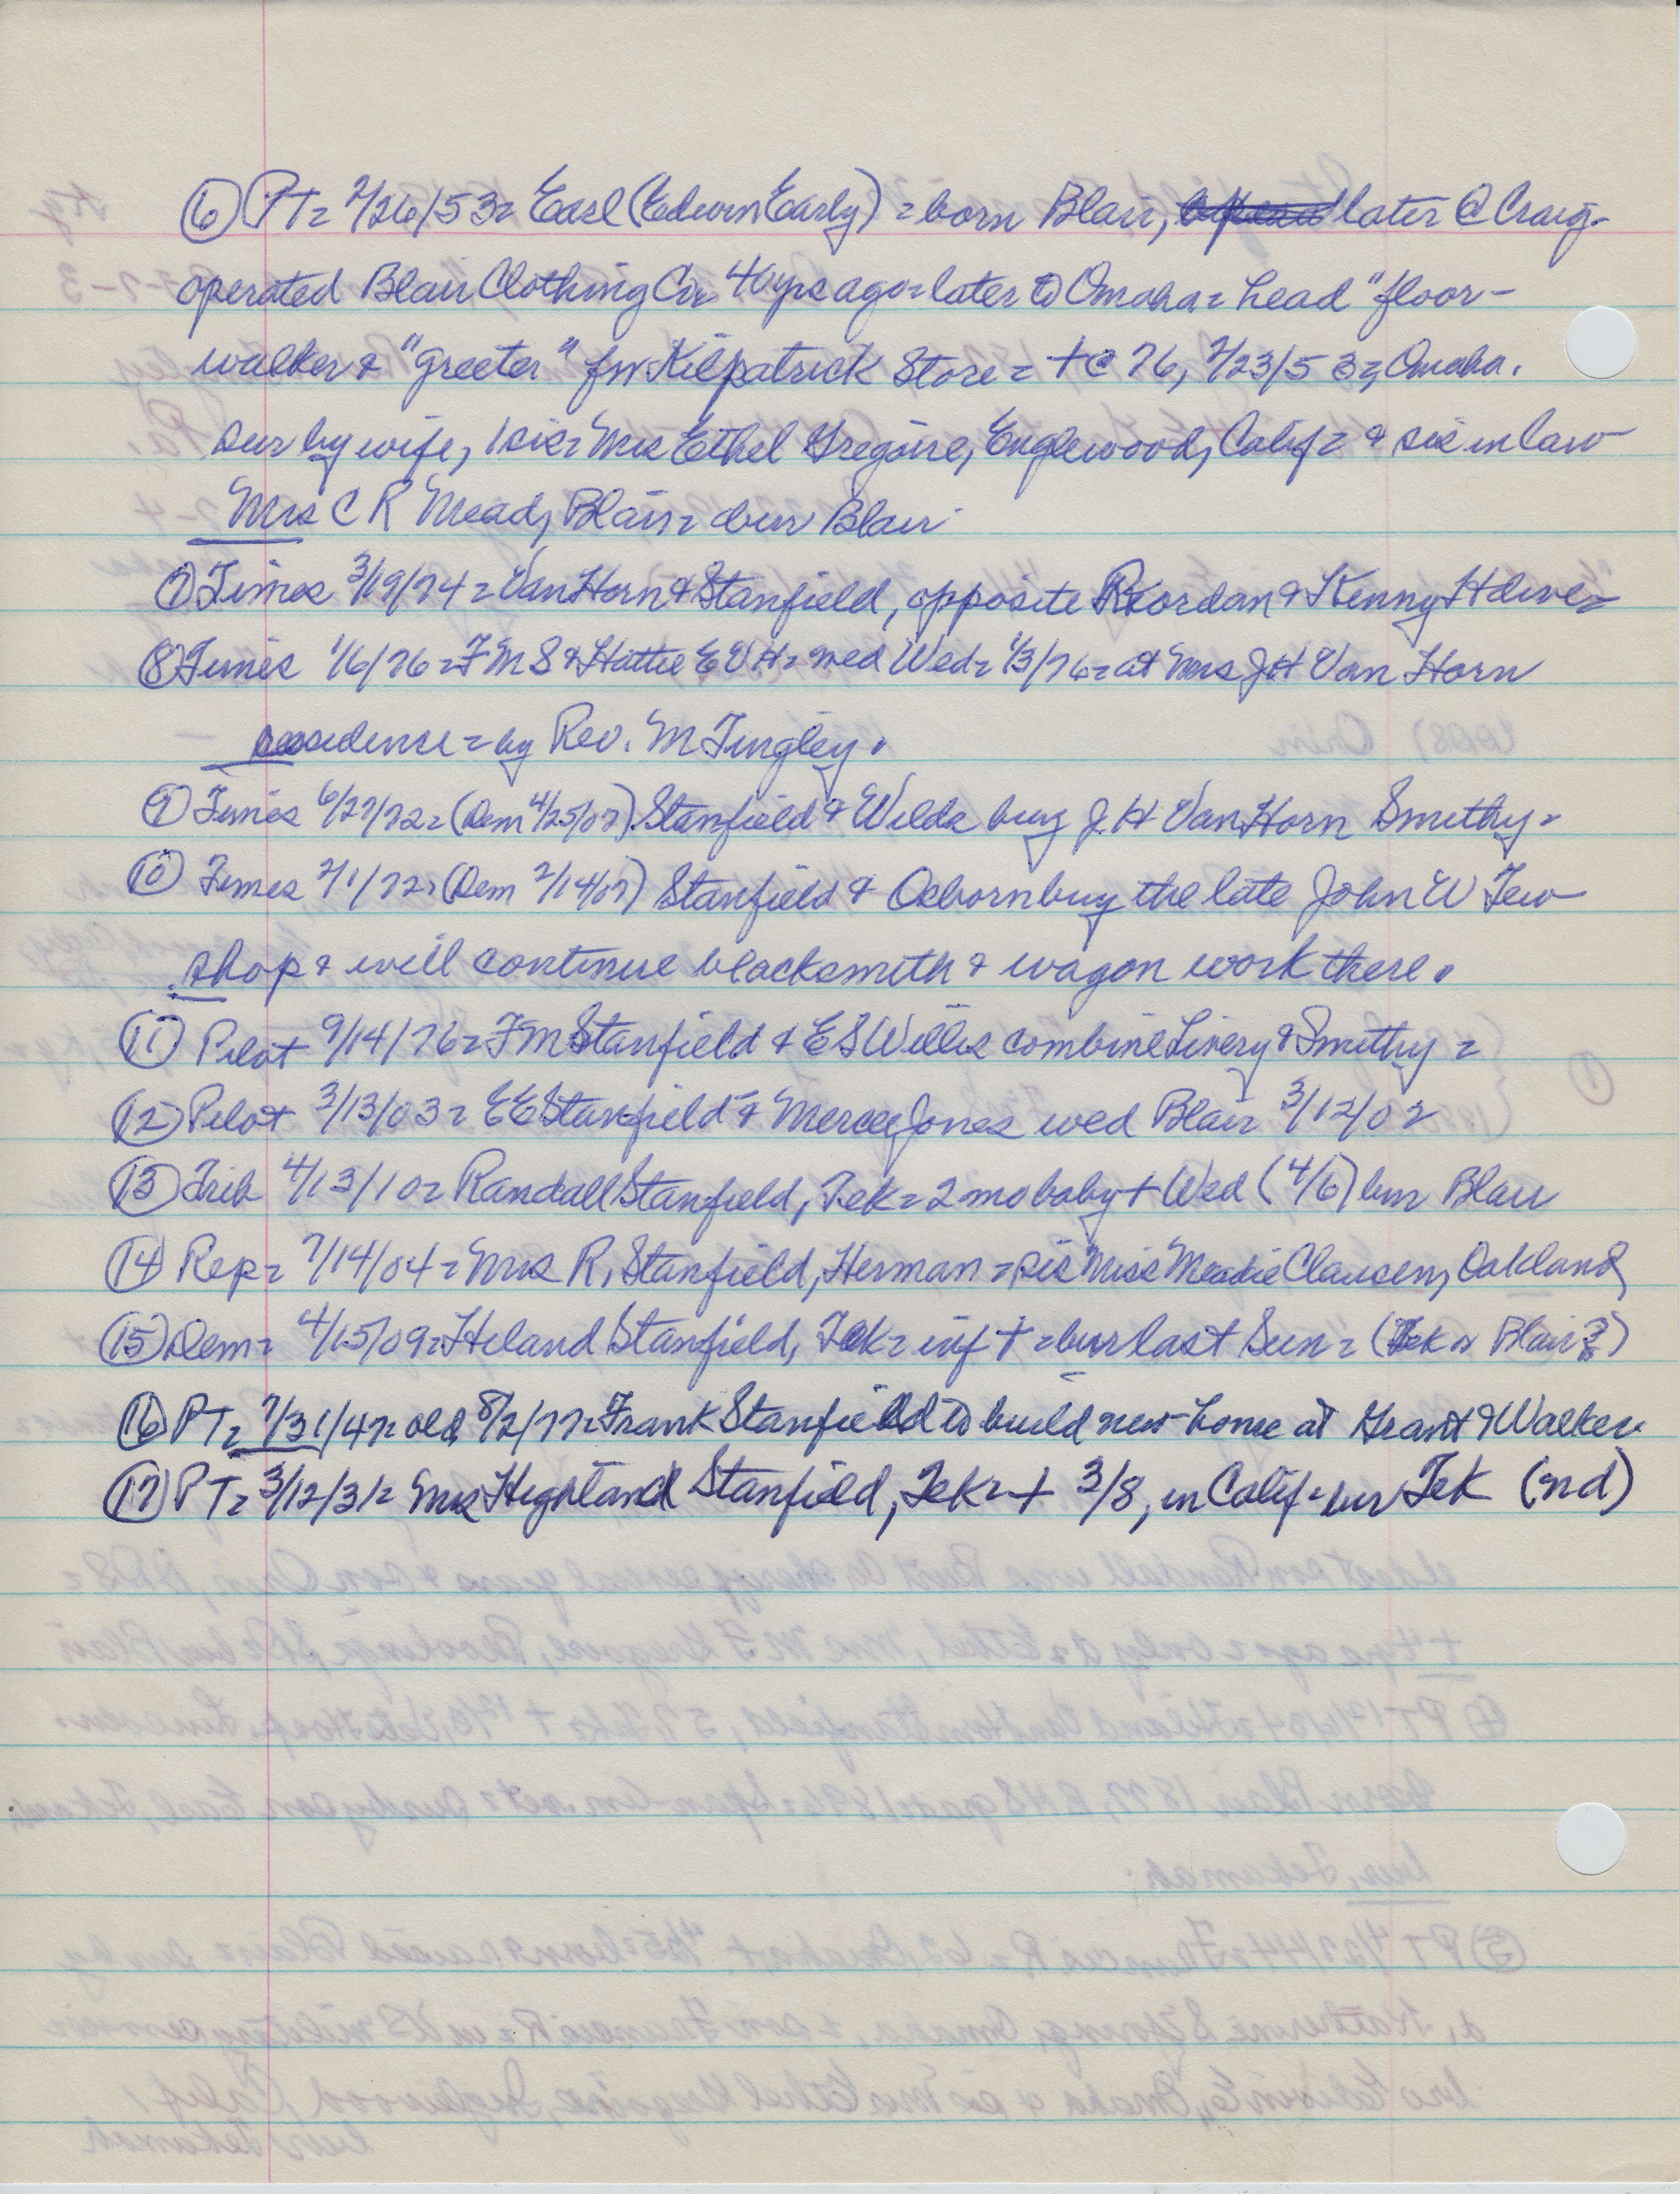 ⑥ PT= 2/26/53= Earl (Edwin Early) = born Blair, later @ Craig-
operated Blair Clothing Co= 40 yrs ago= later to Omaha= head "floor-
walker & "greeter" for Kilpatrick Store = + @ 76, 2/23/53=, Omaha.
sur by wife, 1 sis= Mrs Ethel Gregoire, Englewood, Calif= & sis in law
Mrs C R Mead, Blair= bur Blair
⑦ Times 3/19/74 = Van Horn & Stanfield, opposite Riordan & Kenny Hdwe=
⑧ Times 1/6/76 = F M S & Hattie E V H= wed Wed= 1/3/76= at Mrs J H Van Horn
residence = by Rev. M Tingley.
⑨ Times 6/27/72 = (Dem 4/25/07) Stanfield & Wilds buy J. H Van Horn Smithy=
⑩ Times 2/1/72, (Dem 2/14/07) Stanfield & Osborn buy the late John W Tew
shop & will continue blacksmith & wagon work there.
⑪ Pilot 9/14/76= F M Stanfield & E S Willis combine Livery & Smithy =
⑫ Pilot 3/13/03= E E Stanfield & Mercy Jones wed Blair 3/12/02
⑬ Trib 4/13/10= Randall Stanfield, Tek= 2 mo baby + Wed (4/6) bur Blair
⑭ Rep= 7/14/04= Mrs R. Stanfield, Herman = sis Miss Meadie Clausen, Oakland
⑮ Dem= 4/15/09= Heland Stanfield, Tek= inf + = bur last Sun= (Tek or Blair?)
⑯ PT= 7/31/47= old 8/2/77= Frank Stanfield to build new home at Grant & Walker
⑰ PT= 3/12/31= Mrs Highland Stanfield, Tek= + 3/8, in Calif= bur Tek (nd)